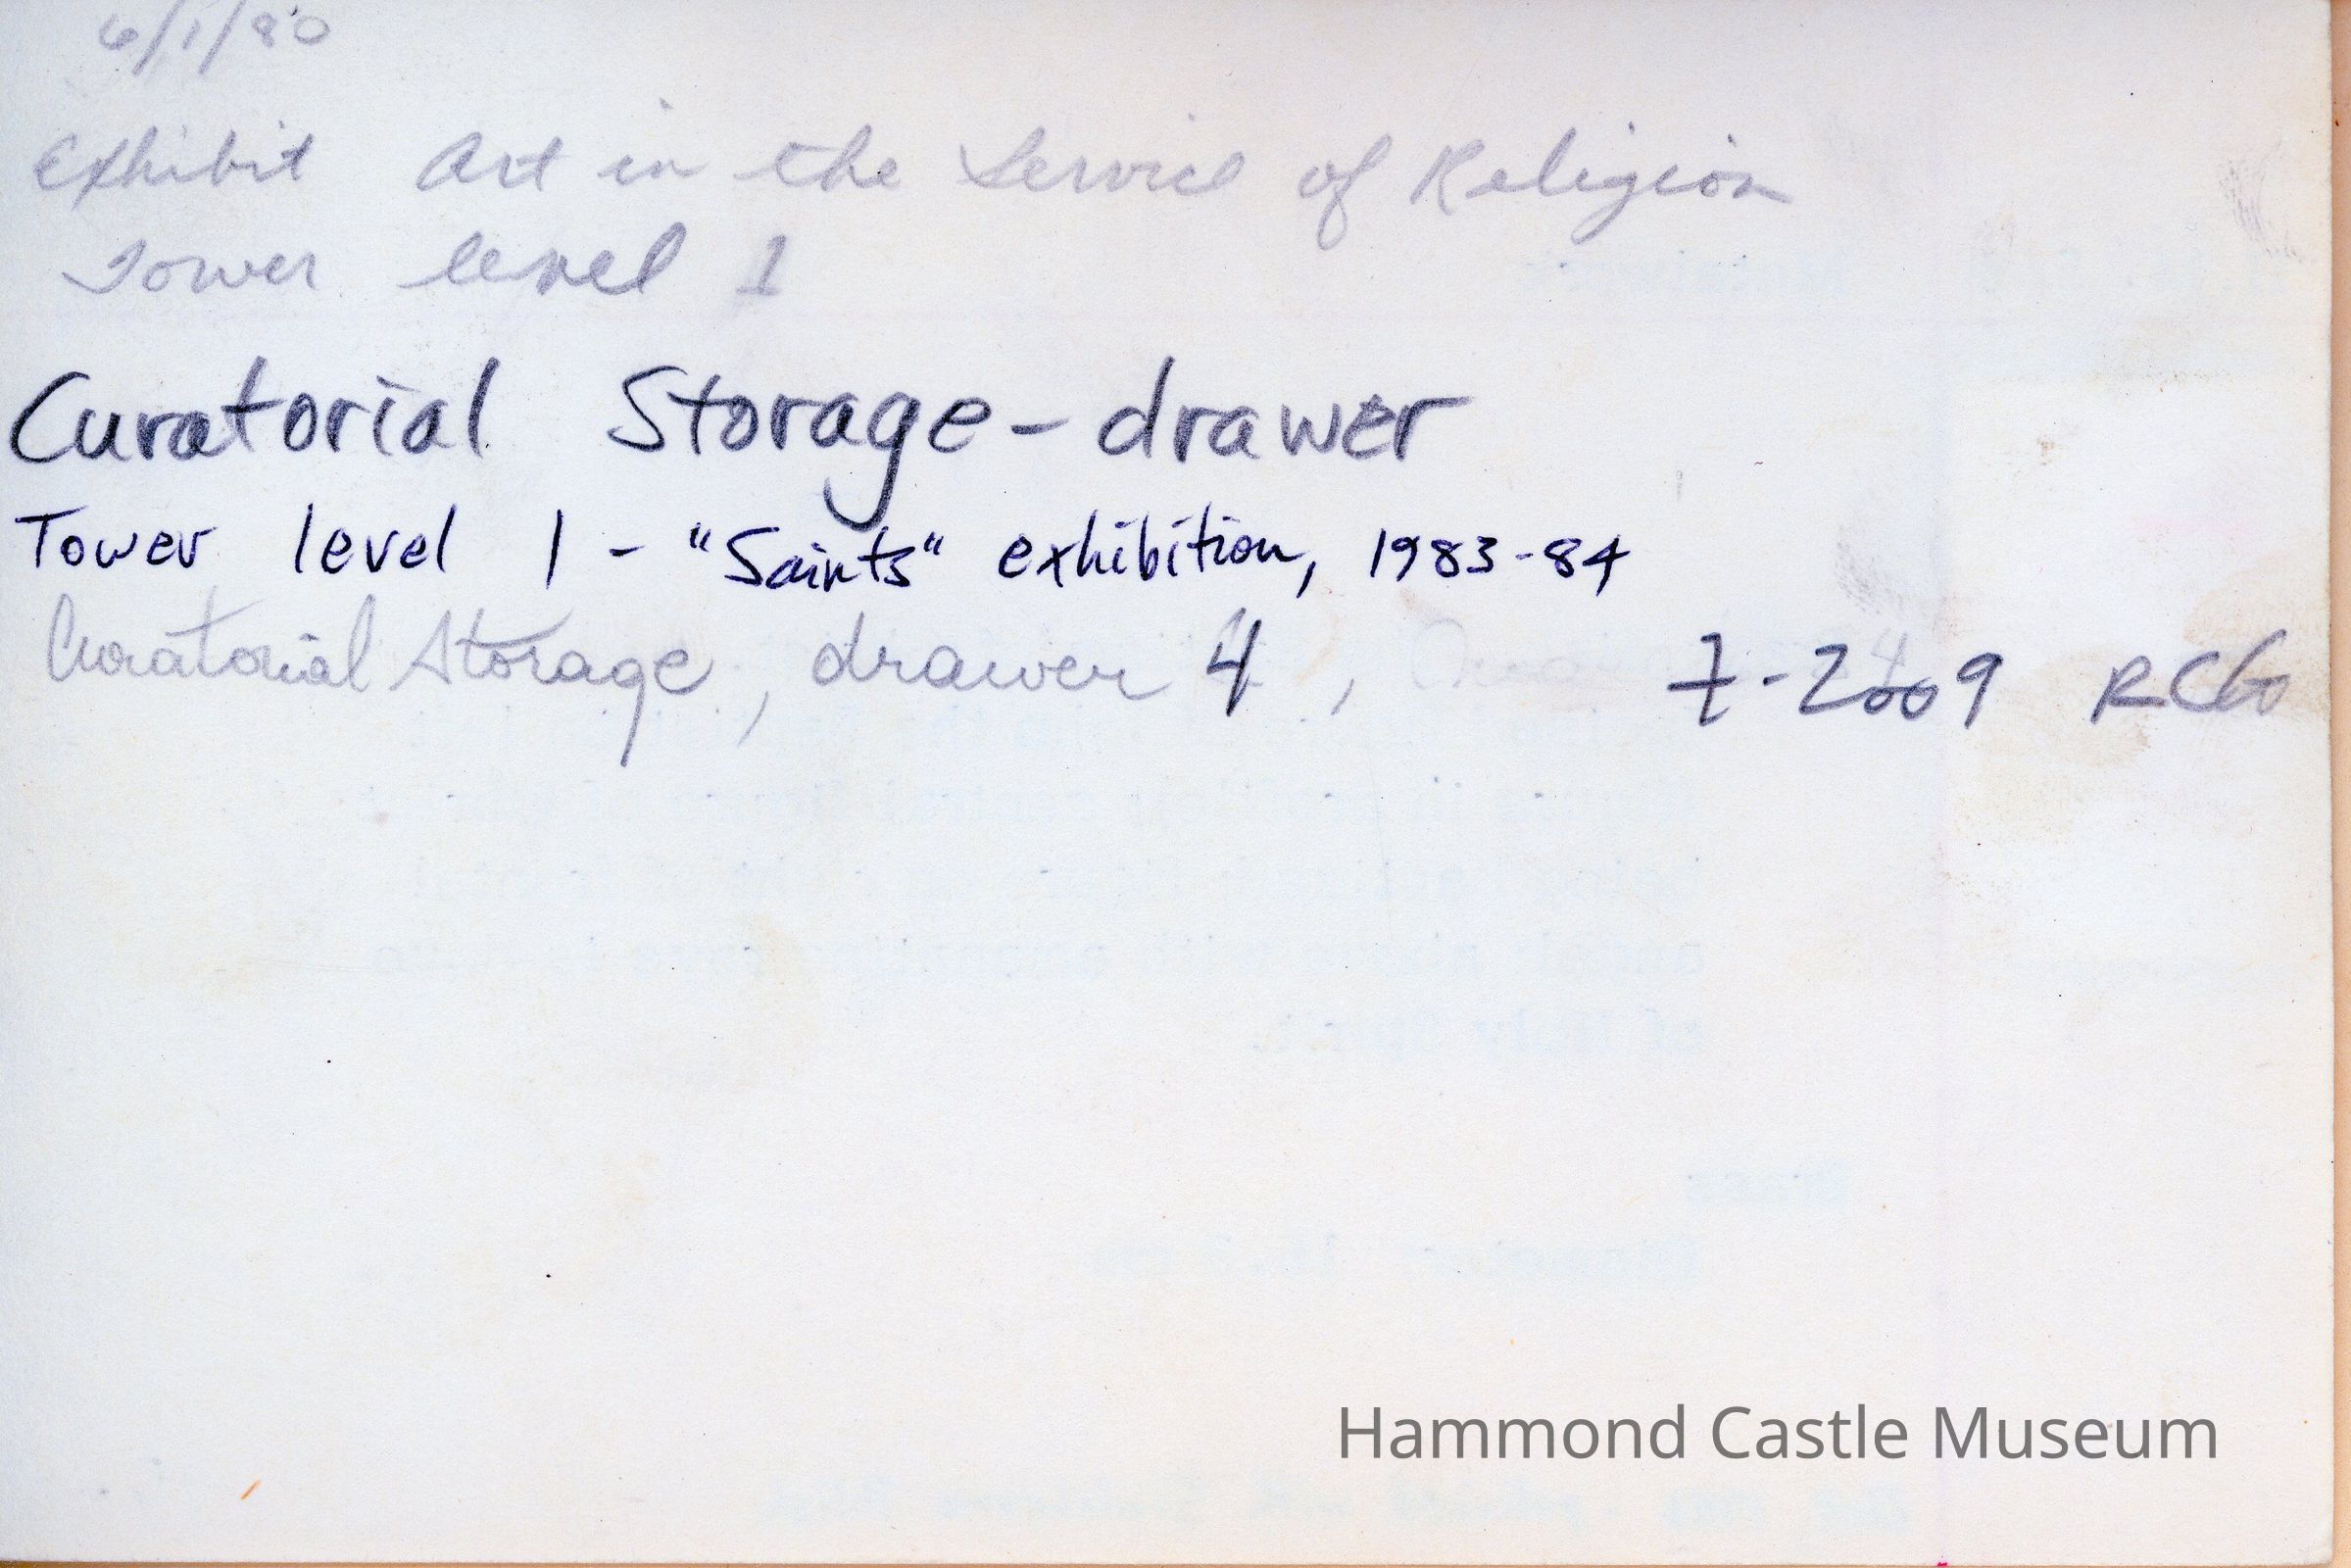 6/1/80
Exhibit Art in the Service of Religion
Tower level 1
Curatorial Storage - drawer
Tower level 1 - "Saints" exhibition, 1983-84
Curatorial Storage, drawer 4, 7-2009 RCG
Hammond Castle Museum